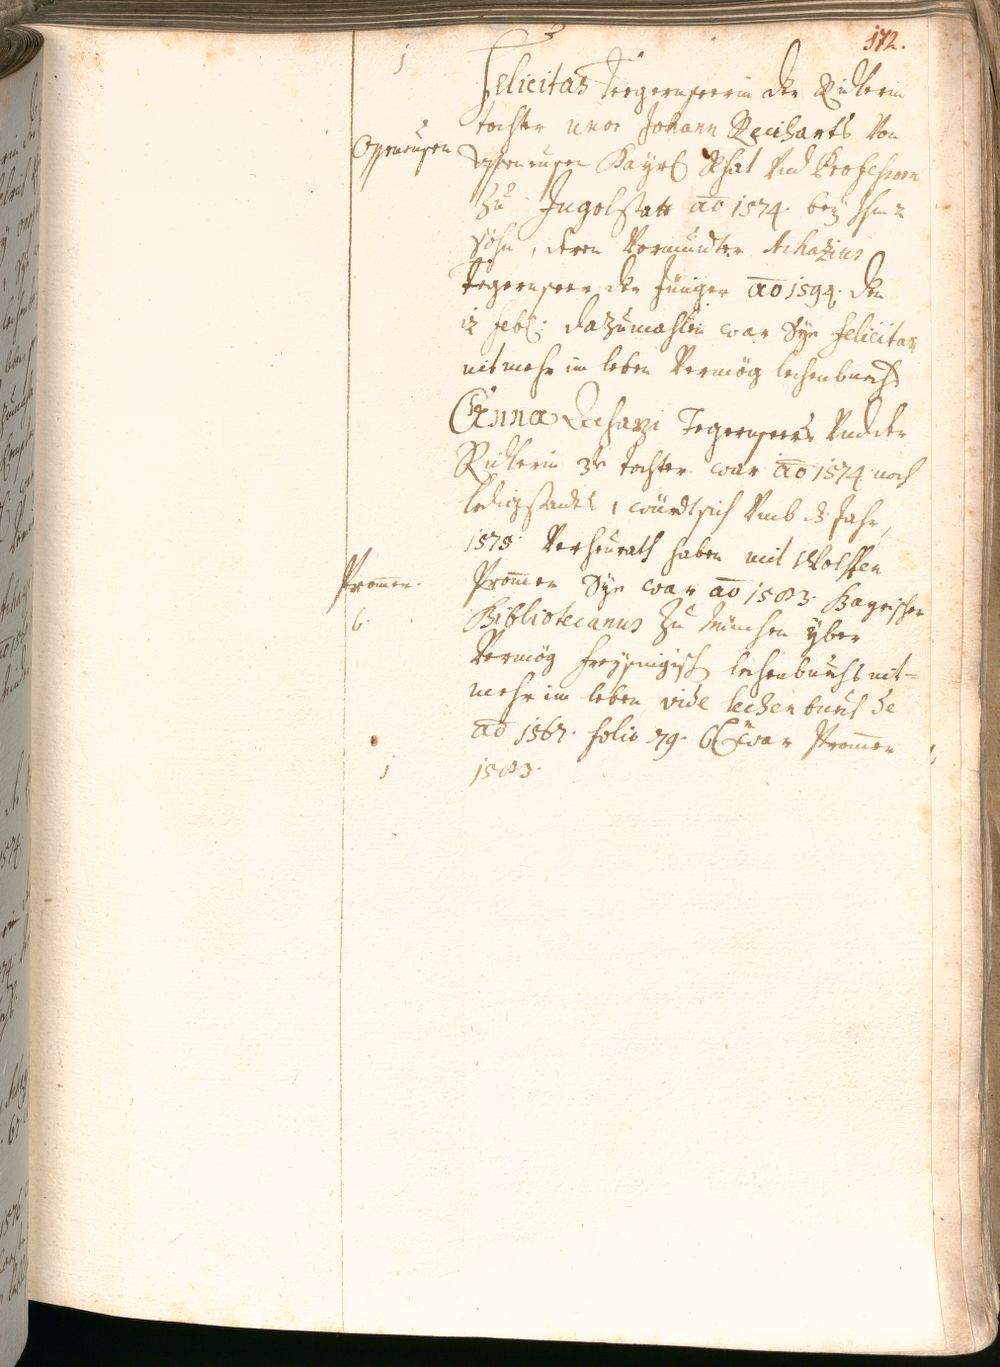 172.
1
Felicitas Tegernseerin der Ridlerin
tochter uxor Johann Reicharts Von
Offeneusen
Offeneusen Bayrl Rhat Vnd Professorn
Zu Ingolstatt aō 1574. bey Ihm 2
söhn, deren Vormündter Achazius
Tegernseer der Jünger aō 1594. den
12 febr: dazumahlen war Sye Felicitas
nit mehr im leben Vermög lechenbuech
Anna Achazi Tegernseers Vnd der
Ridlerin 3te tochter war aō 1574 noch
ledig stands, würdt sich Vmb das Jahr,
1575. Verheurath haben mit Wolffen
Prom̄er.
Prom̄er Sye war aō 1583. Bayrischer
6.
Bibliotecanus Zu München yber
Vermög freysingisch lechenbuechs nit=
mehr im leben vide lechenbuech de
aō 1567. folio 79. war Prom̄er
1
1583.